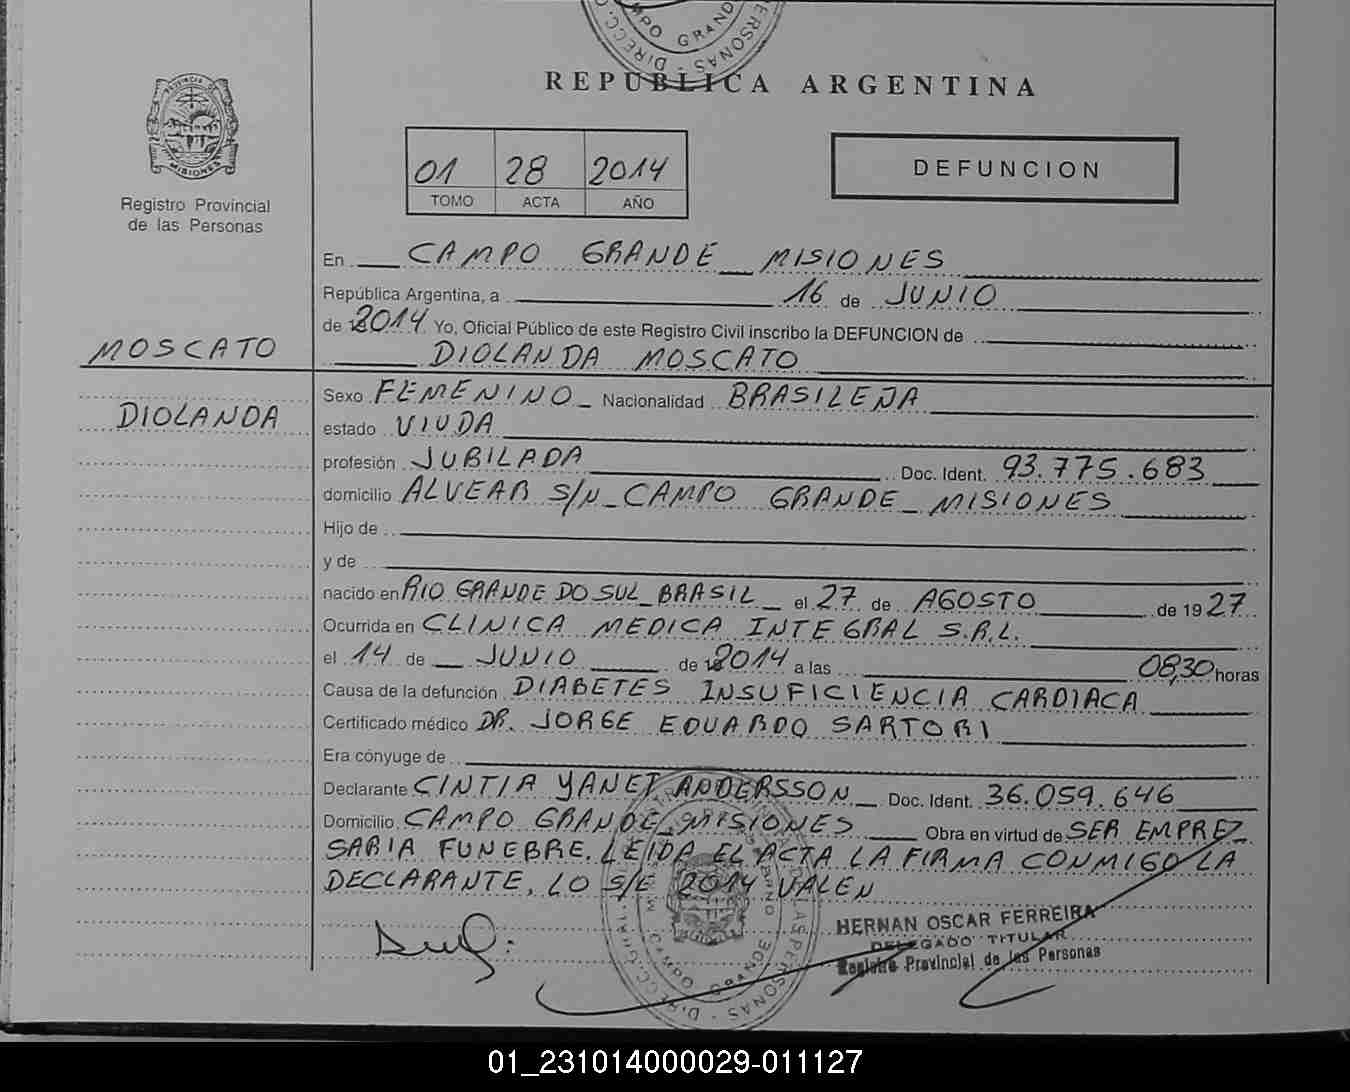 CAMPO GRANDE
DIRECC. PERSONAS
REPUBLICA ARGENTINA
PROVINCIA DE
MISIONES
Registro Provincial
de las Personas
01 28 2014
TOMO ACTA AÑO
DEFUNCION
En CAMPO GRANDE MISIONES
República Argentina, a 16 de JUNIO
de 2014 Yo, Oficial Público de este Registro Civil inscribo la DEFUNCION de
MOSCATO
DIOLANDA MOSCATO
DIOLANDA
Sexo FEMENINO Nacionalidad BRASILEJA
estado VIUDA
profesión JUBILADA Doc. Ident. 93.775.683
domicilio ALVEAR S/N_CAMPO GRANDE_MISIONES
Hijo de
y de
nacido en RIO GRANDE DO SUL_BRASIL_ el 27 de AGOSTO de 1927
Ocurrida en CLINICA MEDICA INTEGRAL S.R.L.
el 14 de JUNIO de 2014 a las 08,30 horas
Causa de la defunción DIABETES INSUFICIENCIA CARDIACA
Certificado médico DR. JORGE EDUARDO SARTORI
Era cónyuge de
Declarante CINTIA YANET ANDERSSON_ Doc. Ident. 36.059.646
Domicilio CAMPO GRANDE_MISIONES Obra en virtud de SER EMPRE
SARIA FUNEBRE. LEIDA EL ACTA LA FIRMA CONMIGO LA
DECLARANTE. LO S/E 2014 VALEN
HERNAN OSCAR FERREIRA
DELEGADO TITULAR
Registro Provincial de las Personas
CAMPO GRANDE
PERSONAS - DIRECC. GRAL.
01_231014000029-011127